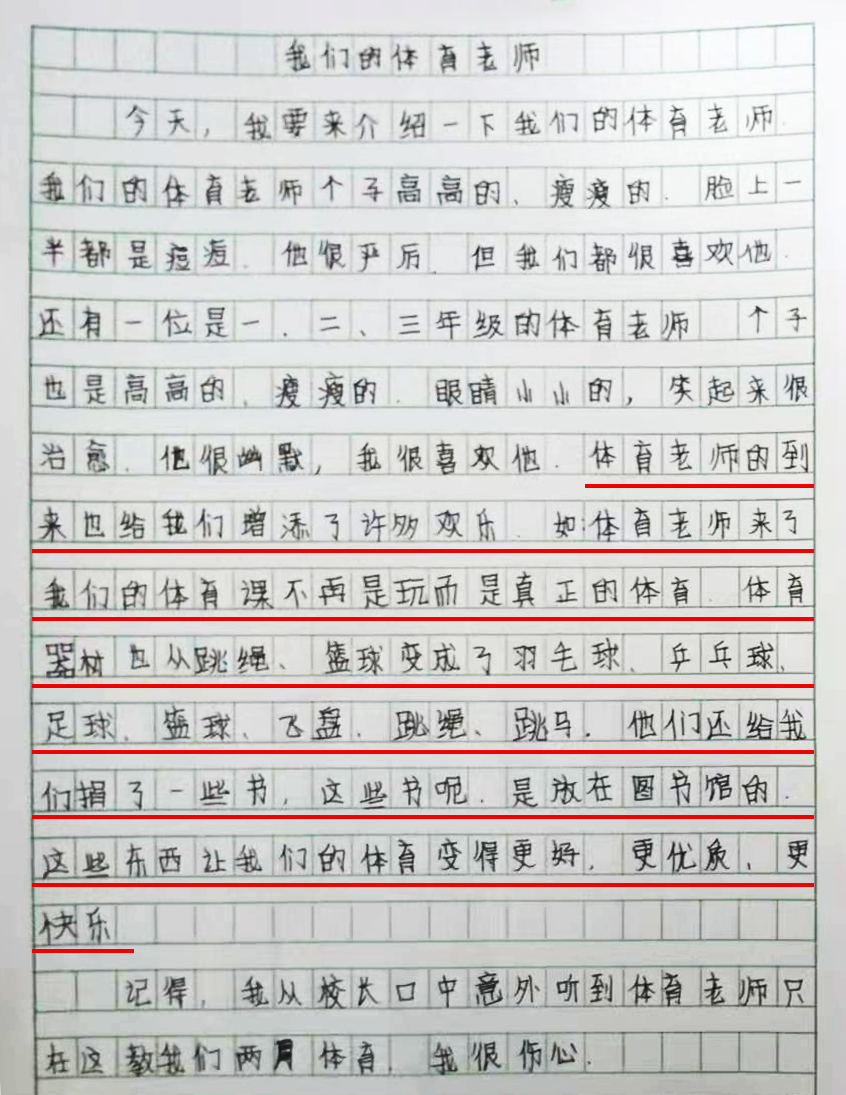 我们的体育老师
今天，我要来介绍一下我们的体育老师.
我们的体育老师个子高高的、瘦瘦的.脸上一
半都是痘痘.他很严后.但我们都很喜欢他.
还有一位是一、二、三年级的体育老师 个子
也是高高的、瘦瘦的.眼睛小小的，笑起来很
治愈.他很幽默，我很喜欢他.体育老师的到
来也给我们增添了许多欢乐.如:体育老师来了
我们的体育课不再是玩而是真正的体育 体育
器材也从跳绳、篮球变成了羽毛球、乒乓球、
足球、篮球、飞盘、跳绳、跳马.他们还给我
们捐了一些书，这些书呢.是放在图书馆的.
这些东西让我们的体育变得更好，更优质、更
快乐
记得，我从校长口中意外听到体育老师只
在这教我们两月体育.我很伤心.